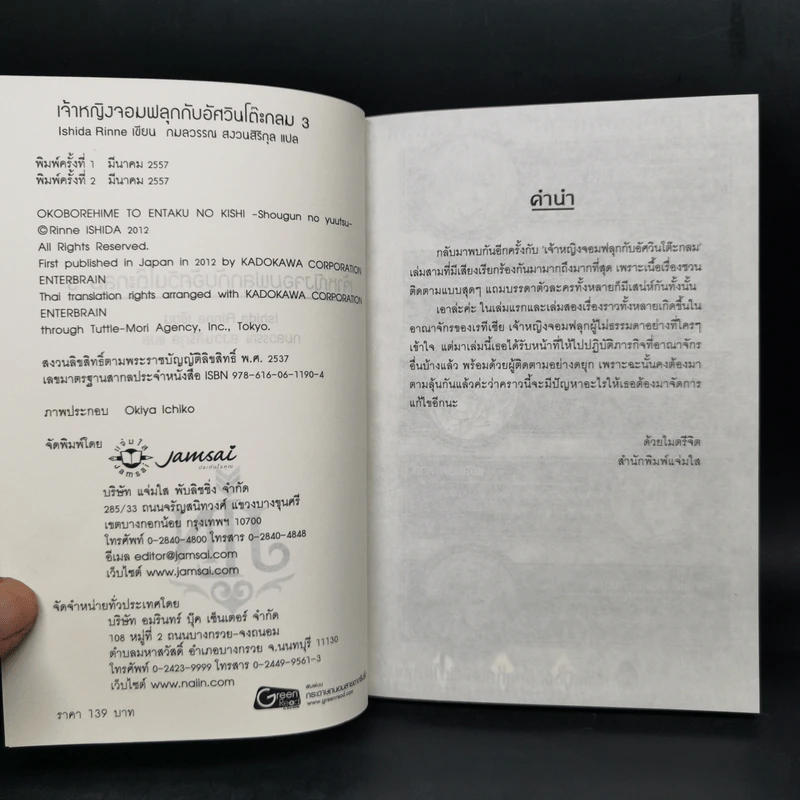 เจ้าหญิงจอมฟลุกกับอัศวินโต๊ะกลม 3
Ishida Rinne เขียน กมลวรรณ สงวนสิริกุล แปล
พิมพ์ครั้งที่ 1 มีนาคม 2557
พิมพ์ครั้งที่ 2 มีนาคม 2557
OKOBOREHIME TO ENTAKU NO KISHI -Shougun no yuutsu-
©Rinne ISHIDA 2012
All Rights Reserved.
First published in Japan in 2012 by KADOKAWA CORPORATION
ENTERBRAIN
Thai translation rights arranged with KADOKAWA CORPORATION
ENTERBRAIN
through Tuttle-Mori Agency, Inc., Tokyo.
สงวนลิขสิทธิ์ตามพระราชบัญญัติลิขสิทธิ์ พ.ศ. 2537
เลขมาตรฐานสากลประจำหนังสือ ISBN 978-616-06-1190-4
ภาพประกอบ Okiya Ichiko
จัดพิมพ์โดย
แจ่มใส
JAMSAI
Jamsai
บริษัท แจ่มใส พับลิชชิ่ง จำกัด
285/33 ถนนจรัญสนิทวงศ์ แขวงบางขุนศรี
เขตบางกอกน้อย กรุงเทพฯ 10700
โทรศัพท์ 0-2840-4800 โทรสาร 0-2840-4848
อีเมล editor@jamsai.com
เว็บไซต์ www.jamsai.com
จัดจำหน่ายทั่วประเทศโดย
บริษัท อมรินทร์ บุ๊ค เซ็นเตอร์ จำกัด
108 หมู่ที่ 2 ถนนบางกรวย-จงถนอม
ตำบลมหาสวัสดิ์ อำเภอบางกรวย จ.นนทบุรี 11130
โทรศัพท์ 0-2423-9999 โทรสาร 0-2449-9561-3
เว็บไซต์ www.naiin.com
Green Read
พิมพ์บน
กระดาษถนอมสายตากรีนรี้ด
www.greenread.com
ราคา 139 บาท
คำนำ
กลับมาพบกันอีกครั้งกับ 'เจ้าหญิงจอมฟลุกกับอัศวินโต๊ะกลม'
เล่มสามที่มีเสียงเรียกร้องกันมามากถึงมากที่สุด เพราะเนื้อเรื่องชวน
ติดตามแบบสุดๆ แถมบรรดาตัวละครทั้งหลายก็มีเสน่ห์กันทั้งนั้น
เอาล่ะค่ะ ในเล่มแรกและเล่มสองเรื่องราวทั้งหลายเกิดขึ้นใน
อาณาจักรของเรทิเซีย เจ้าหญิงจอมฟลุกผู้ไม่ธรรมดาอย่างที่ใครๆ
เข้าใจ แต่มาเล่มนี้เธอได้รับหน้าที่ให้ไปปฏิบัติภารกิจที่อาณาจักร
อื่นบ้างแล้ว พร้อมด้วยผู้ติดตามอย่างดยุก เพราะฉะนั้นคงต้องมา
ตามลุ้นกันแล้วค่ะว่าคราวนี้จะมีปัญหาอะไรให้เธอต้องมาจัดการ
แก้ไขอีกนะ
ด้วยไมตรีจิต
สำนักพิมพ์แจ่มใส